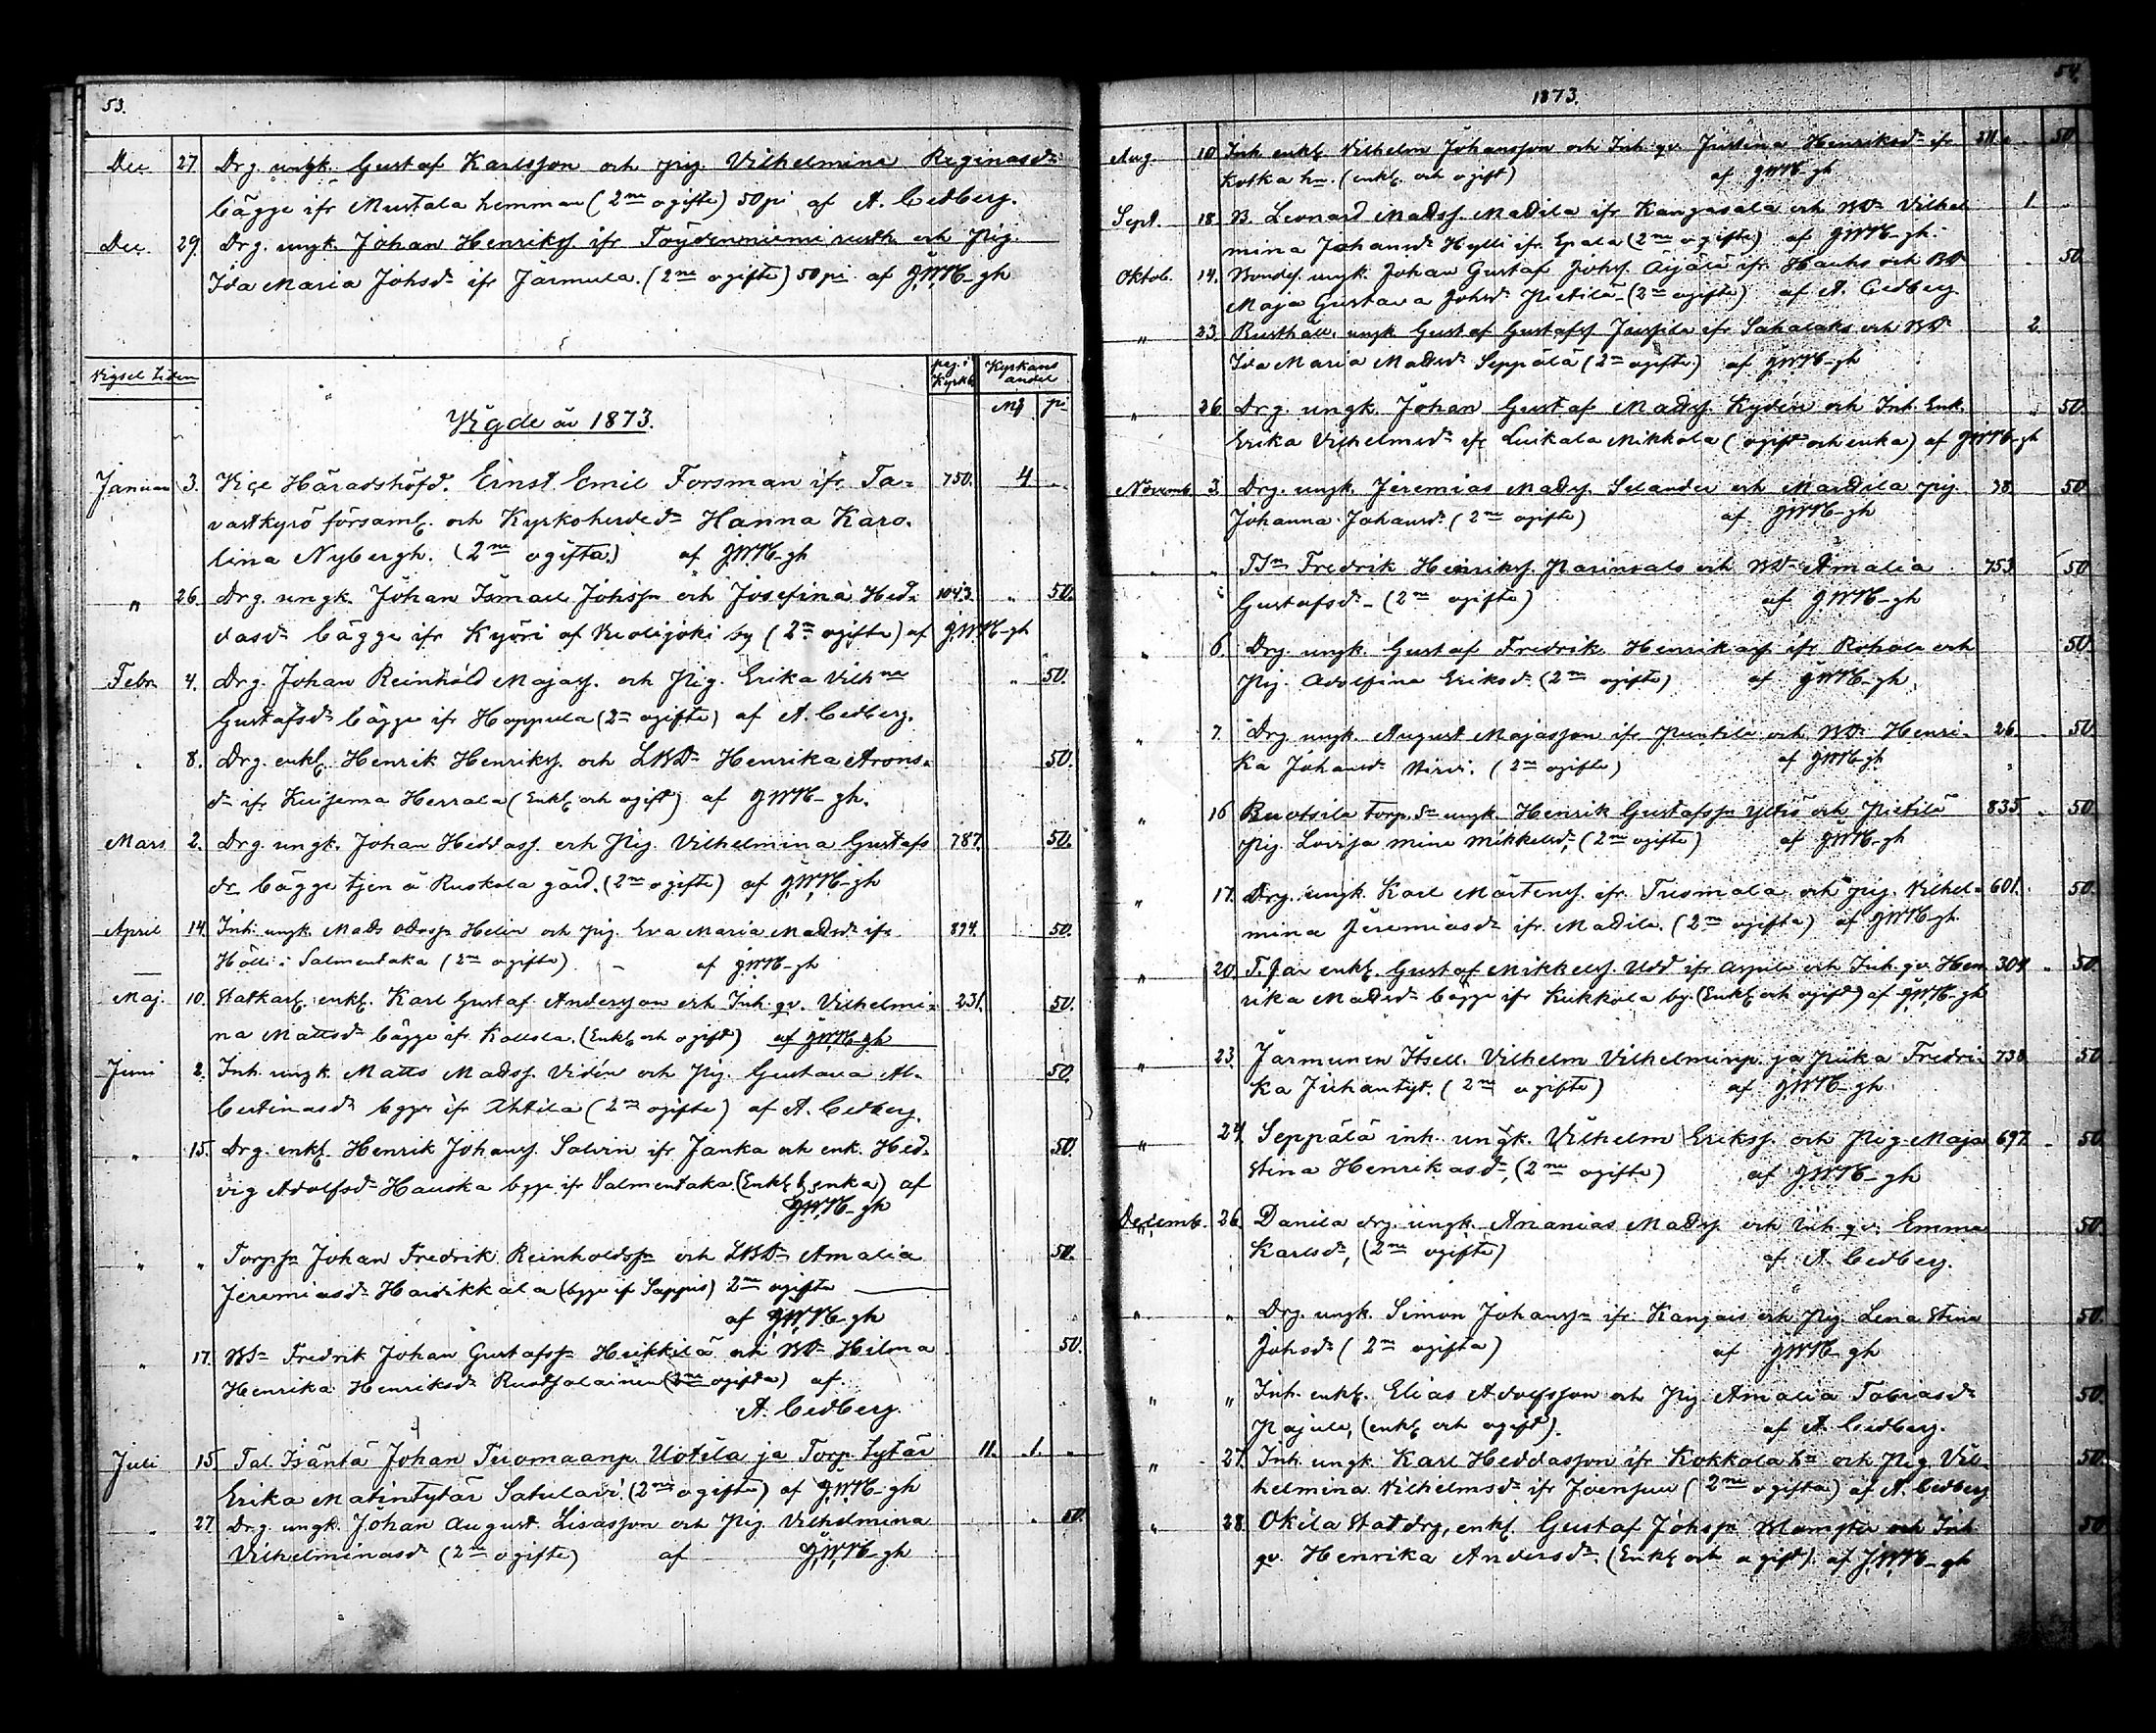 53.
Dec. 27. Drg. ungk. Gustaf Karlsson och pig. Vilhelmina Reginasdr
bägge ifr Mustala hemman (2ne ogifte) 50 pi af A. Cedberg.
Dec. 29. Drg. ungk. Johan Henrikss. ifr Töydenniemi rusth. och Pig.
Ida Maria Johsdr ifr Järmula. (2ne ogifte) 50 pi. af GWH-gh
Vigsel tiden pag. i Kyrkb. Kyrkans andel
Mk pi
Vigde år 1873.
Januari 3. Vice Häradshöfd. Ernst Emil Forsman ifr Ta- 750. 4 „
vastkyrö församl. och Kyrkoherdedr Hanna Karo-
lina Nybergh. (2ne ogifta.) af GWH-gh
„ 26. Drg. ungk. Johan Ismael Johssn och Josefina Hed- 1043. „ 50.
dasdr bägge ifr Kyöri af by (2ne ogifte) af GWH-gh
Febr. 4. Drg. Johan Reinhold Majass. och Pig. Erika Vilhna „ 50.
Gustafsdr bägge ifr Hoppula (2ne ogifte) af A. Cedberg.
„ 8. Drg. enkl. Henrik Henrikss. och LBDr Henrika Arons- 50.
dr ifr Kuisema Herrala (Enkl. och ogift) af GWH-gh.
Mars 2. Drg ungk. Johan Heddass. och Pig. Vilhelmina Gustafs 787. 50.
dr bägge tjen å Ruskola gård. (2ne ogifte) af GWH-gh
April 14. Inh. ungk. Mads Helin och pig. Eva Maria Madsdr ifr 894. 50.
Hölli i Salmentaka (2ne ogifte) af GWH-gh
Maj. 10. Statkarl enkl. Karl Gustaf Andersson och Inh. qv. Vilhelmi- 231. 50.
na Mattsdr bägge ifr Kallola. (Enkl och ogift) af GWH-gh
Juni 2. Inh. ungk. Matts Madss. Vidén och Pig. Gustava Al- 50.
bertinasdr bgge ifr Ahtila (2ne ogifte) af A. Cedberg.
„ 15. Drg. enkl. Henrik Johanss. Salvin ifr Janka och enk. Hed- 50.
vig Adolfsdr Hauska bgge ifr Salmentaka. (Enkl & enka) af
GWH-gh
„ „ Torpssn Johan Fredrik Reinholdssn och LBDr Amalia 50.
Jeremiasdr Haudikkala (bgge if Sappis) 2ne ogifte
af GWH-gh
„ 17. BSn Fredrik Johan Gustafssn Heikkilä och BDr Hilma 50.
Henrika Henriksdr Ruotsalainen (2ne ogifta) af
A. Cedberg.
Juli 15. Tal. Isäntä Johan Tuomaanp. Uotila ja Torp. tytär 11. 1. „
Erika Matintytär Satulari. (2ne ogifte) af GWH-gh
„ 27. Drg. ungk. Johan August Lisasson och Pig. Vilhelmina „ 50.
Vilhelminasdr (2ne ogifte) af GWH-gh
54.
1873.
Aug. 10 Inh. enkl. Vilhelm Johansson och Inh. qv. Justina Henriksdr ifr „ 50.
Kotka hn. (enkl. och ogift) af GWH-gh
Sept. 18. B. Leonard Madss. Madila ifr Kangasala och BDr Vilhel 1. „
mina Johansdr Hylli ifr Epala (2ne ogifte) af GWH-gh.
Oktob. 14. Bondes. ungk. Johan Gustaf Johss. Äijälä ifr Hauho och BDr „ 50.
Maja Gustava Johsdr Pietilä- (2ne ogifte) af A. Cedberg.
„ 23. Rusthåll. ungk. Gustaf Gustafss Jussila ifr Sahalaks och BDr 2.
Ida Maria Madsdr Seppälä (2ne ogifte) af GWH-gh
„ 26. Drg. ungk. Johan Gustaf Madss. Kydén och Inh. Enk. „ 50.
Erika Vilhelmsdr ifr Luikala Mikkola (ogift och enka) af GWH-gh
Novemb. 3. Drg. ungk. Jeremias Madss. Selander och Mardila pig. 38. 50
Johanna Johansdr. (2ne ogifte) af GWH-gh
„ „ TSn Fredrik Henrikss. och BDr Amalia 753. 50
Gustafsdr- (2ne ogifte) af GWH-gh
„ 6. Drg. ungk. Gustaf Fredrik Henrikass. ifr Rohola och 50.
Pig. Adolfina Eriksdr (2ne ogifte) af GWH-gh
„ 7. Drg. ungk. August Majasson ifr Puntila och BDr Henri- 26. 50
ka Johansdr Virvi. (2ne ogifte) af GWH-gh
„ 16 Ruotsila torp. Sn ungk. Henrik Gustafssn Yltiö och Pietilä 835. 50.
pig. Lovisa mina Mikkelsdr (2ne ogifte) af GWH-gh
„ 17. Drg. ungk. Karl Mårtenss. ifr. Tuomala och pig. Vilhel- 601. 50.
mina Jeremiasdr ifr Madila. (2ne ogifta) af GWH-gh.
„ 20. enkl. Gustaf Mikkelss. Udd ifr Arpila och Inh. qv. Hen 304. 50.
rika Madsdr bägge ifr Kukkola by. (Enkl. och ogift) af GWH-gh
„ 23. Jarmunen Itsell. Vilhelm Vilhelminp. ja piika Fredri- 738. 50
ka Juhantyt. (2ne ogifte) af GWH-gh.
„ 24. Seppälä inh. ungk. Vilhelm Erikss. och Pig. Maja 697. 50.
Stina Henrikasdr, (2ne ogifte) af GWH-gh
Decemb. 26. Danila drg. ungk. Ananias Madss. och Inh. qv. Emma 50.
Karlsdr, (2ne ogifte) af A. Cedberg.
„ „ Drg. ungk. Simon Johanssn ifr. Kangais och Pig. Lena Stina 50.
Johsdr (2ne ogifta) af GWH-gh
„ „ Inh. enkl. Elias Adolfsson och Pig. Amalia Tobiasdr 50.
Pajula, (enkl. och ogift). af A. Cedberg.
„ 27. Inh. ungk. Karl Heddasson ifr Kokkola hn och Pig. Vil- 50.
helmina Vilhelmsdr ifr Joensuu (2ne ogifta) af A. Cedberg
„ 28 Okila Stat drg, enkl. Gustaf Johssn och Inh. 50
qv. Henrika Andersdr. (Enkl och ogift). af GWH-gh